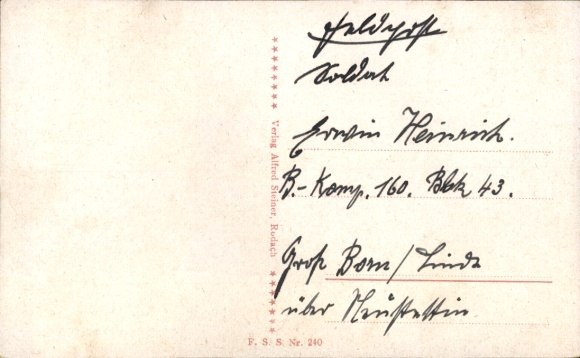 Feldpost
Soldat
Erwin Heinrich.
B.-Komp. 160. Blck 43.
Groß Born/Linde
über Neustettin
Verlag Alfred Steiner, Rodach
F. S. S. Nr. 240